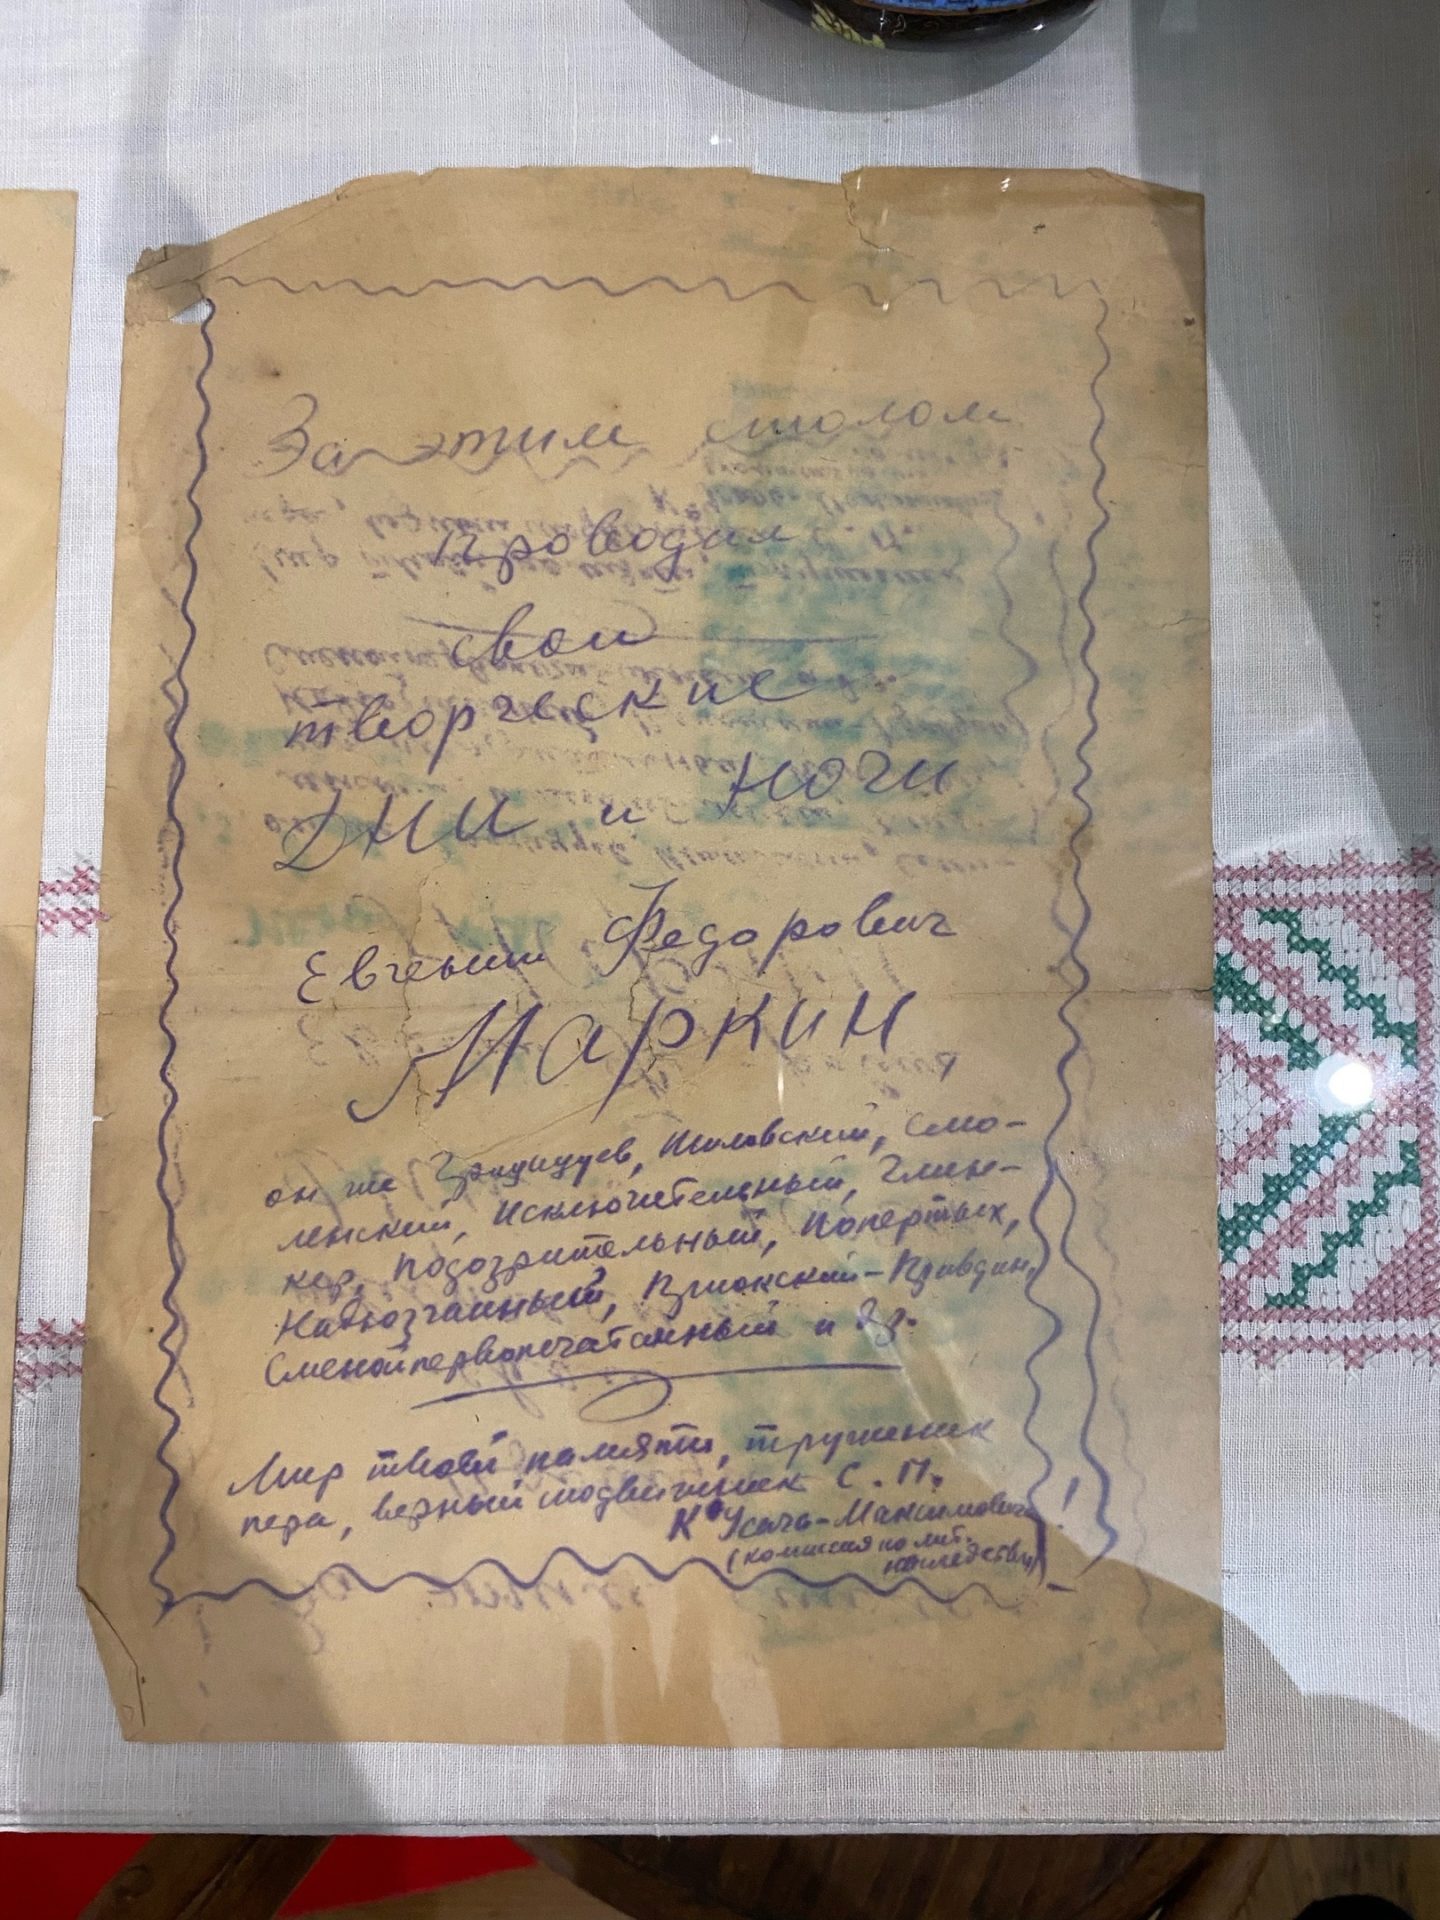 За этим столом
проводил
свои
творческие
дни и ночи
Евгений Федорович
Маркин
он же Шиловский, Смо-
ленский, Исключительный, Глин-
кер, Подозрительный, Попертых,
Надюзганный, Приокский-Правдин,
Сменойпервопечатанный и др.
Мир твоей памяти, труженик
пера, верный подвижник С. П.
К° Усачь-Максимович!
(комиссия по лит.
наследству)